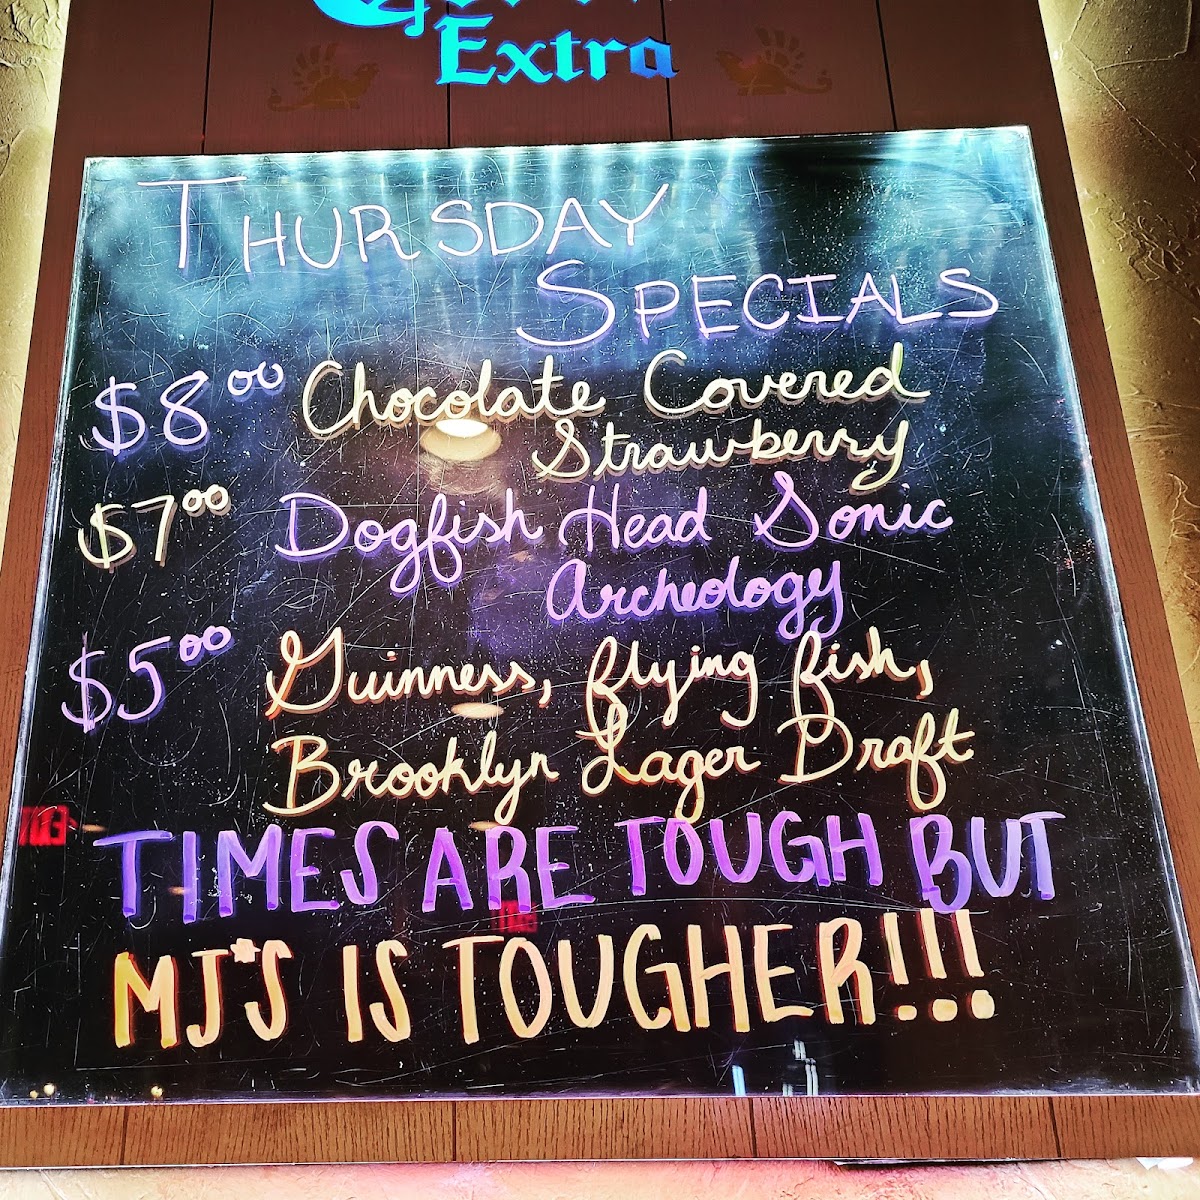 Extra
THURSDAY
SPECIALS
$8.00 Chocolate Covered
Strawberry
$7.00 Dogfish Head Sonic
Archeology
$5.00 Guinness, flying fish,
Brooklyn Lager Draft
TIMES ARE TOUGH BUT
MJ'S IS TOUGHER!!!